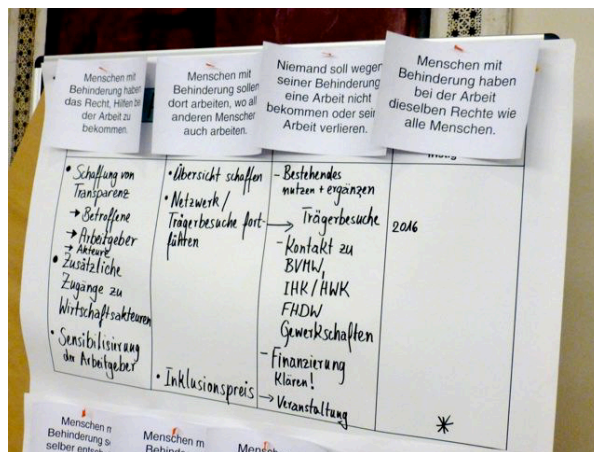 Menschen mit
Behinderung haben
das Recht, Hilfen bei
der Arbeit zu
bekommen.
Menschen mit
Behinderung sollen
dort arbeiten, wo alle
anderen Menschen
auch arbeiten.
Niemand soll wegen
seiner Behinderung
eine Arbeit nicht
bekommen oder seine
Arbeit verlieren.
Menschen mit
Behinderung haben
bei der Arbeit
dieselben Rechte wie
alle Menschen.
• Schaffung von
Transparenz
→ Betroffene
→ Arbeitgeber
→ Akteure
• Zusätzliche
Zugänge zu
Wirtschaftsakteuren
• Sensibilisirung
der Arbeitgeber
• Übersicht schaffen
• Netzwerk /
Trägerbesuche fort-
führen
• Inklusionspreis
- Bestehendes
nutzen + ergänzen
→ Trägerbesuche
- Kontakt zu
BVMW,
IHK / HWK
FHDW
Gewerkschaften
- Finanzierung
klären!
→ Veranstaltung
2016
*
Menschen m
Behinderung s
selber entsch
Menschen m
Menschen